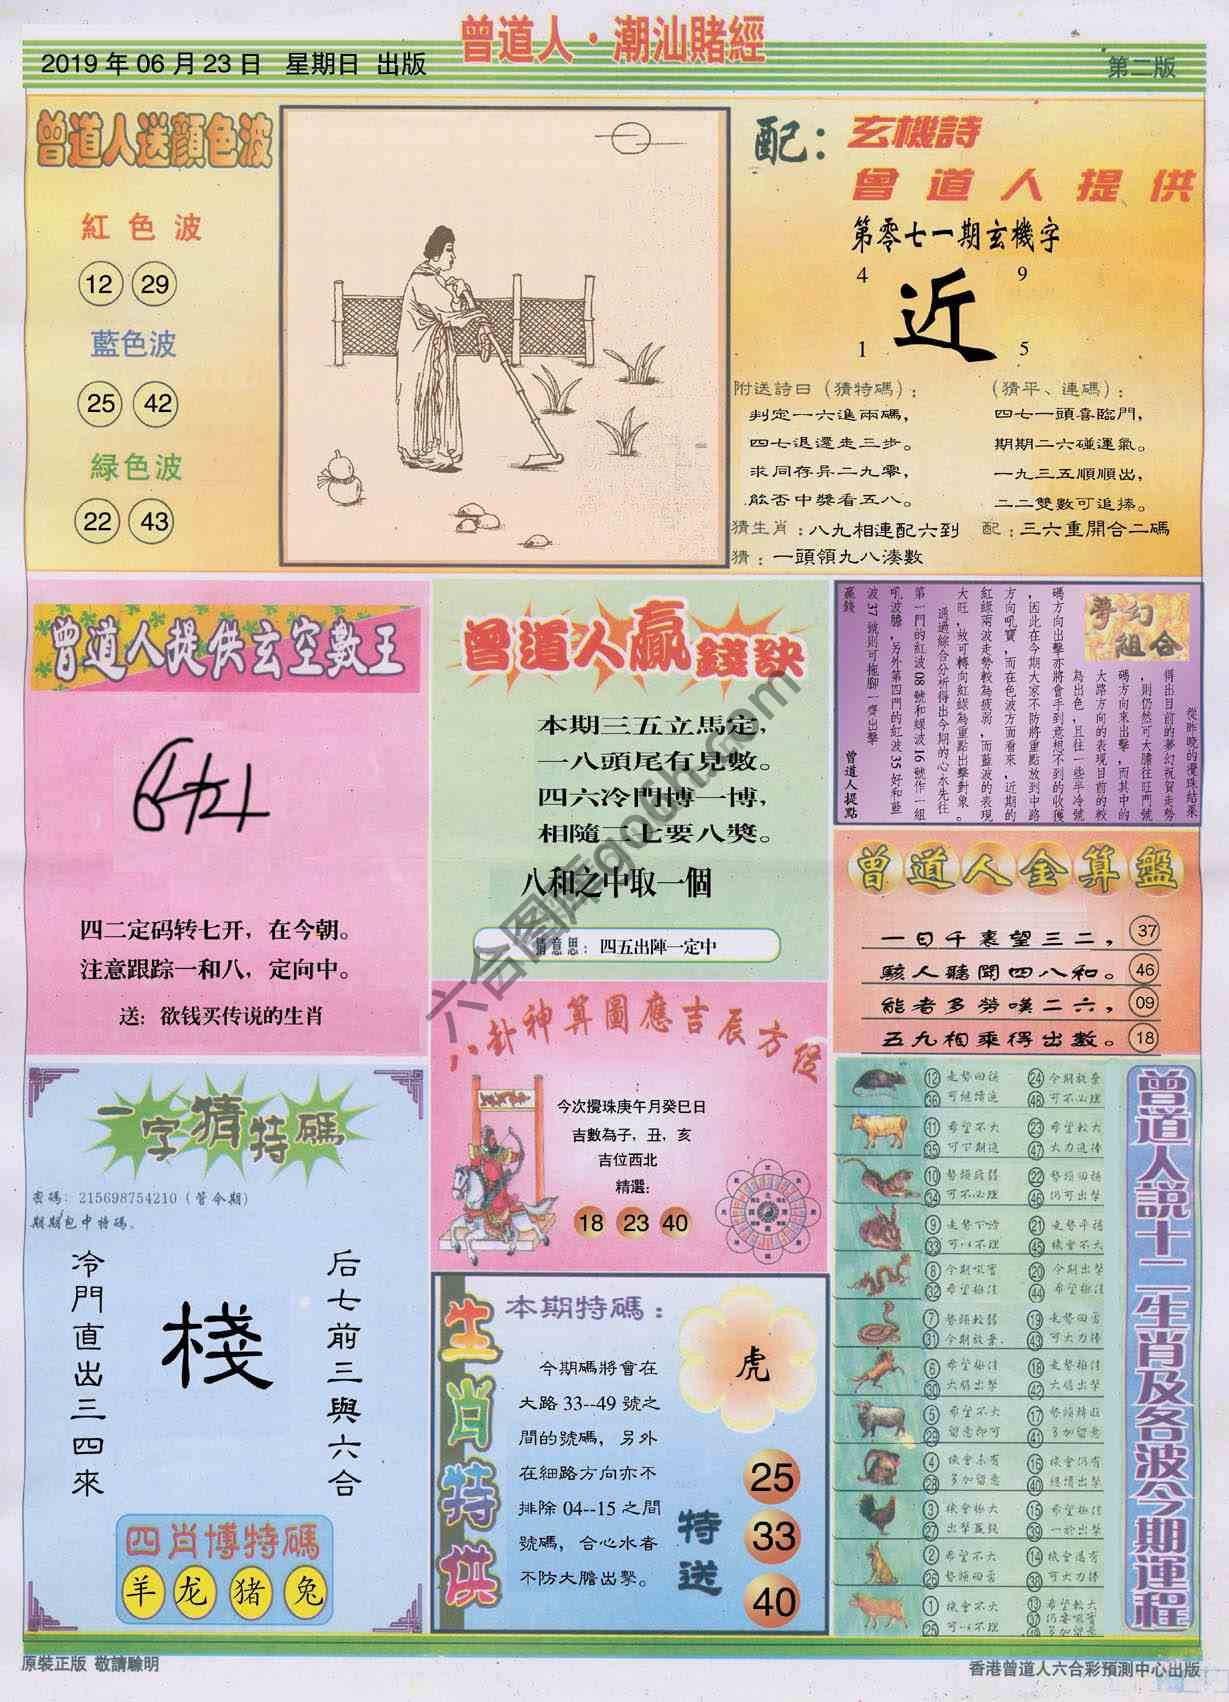 曾道人·潮汕賭經
2019 年 06 月 23 日　星期日　出版
第二版
曾道人送顔色波
紅色波
12 29
藍色波
25 42
緑色波
22 43
配：玄機詩
曾道人提供
第零七一期玄機字
4 9
近
1 5
附送詩曰（猜特碼）：
判定一六進兩碼，
四七退還走三步。
求同存异二九零，
能否中獎看五八。
（猜平、連碼）：
四七一頭喜臨門，
期期二六碰運氣。
一九三五順順出，
二二雙數可追捧。
猜生肖：八九相連配六到
配：三六重開合二碼
猜：一頭領九八湊數
曾道人提供玄空數王
四二定码转七开，在今朝。
注意跟踪一和八，定向中。
送：欲钱买传说的生肖
曾道人贏錢訣
本期三五立馬定，
一八頭尾有見數。
四六冷門博一博，
相隨二七要八獎。
八和之中取一個
猜意思：四五出陣一定中
夢幻組合
從昨晚的攪珠結果
得出目前的夢幻祝賀走勢
，則仍然可大膽往旺門號
碼方向來出擊，而其中的
大路方向的表現目前的較
為出色，且往一些半冷號
碼方向出擊亦將會手到意想不到的收獲
，因此在今期大家不防將重點放到中路
方向吼寶，而在色波方面看來，近期的
紅緑兩波走勢較為疲弱，而藍波的表現
大旺，故可轉向紅緑為重點出擊對象。
通過綜合分析得出今期的心水先往
第一門的紅波 08 號和緑波 16 號作一組
吼波膽，另外第四門的紅波 35 好和藍
波 37 號則可拖腳一齊出擊
贏錢
曾道人提點
曾道人金算盤
一日千裏望三二， 37
駭人聽聞四八和。 46
能者多勞嘆二六， 09
五九相乘得出數。 18
八卦神算圖應吉辰方位
今次攪珠庚午月癸巳日
吉數為子，丑，亥
吉位西北
精選：
18 23 40
一字猜特碼
密碼：215698754210（管令期）
期期包中特碼。
冷門直出三四來
棧
后七前三與六合
四肖博特碼
羊 龙 猪 兔
生肖特供
本期特碼：
今期碼將會在
大路 33--49 號之
間的號碼，另外
在細路方向亦不
排除 04--15 之間
號碼，合心水者
不防大膽出擊。
虎
特送
25
33
40
曾道人説十二生肖及各波今期運程
12 36 走勢回穩 可繼續追
24 48 今期放棄 可不必理
11 35 希望不大 可下期追
23 47 希望較大 大力追捧
10 34 勢頭疲弱 可不必理
22 46 勢頭回穩 仍可出擊
9 33 走勢下滑 可以不理
21 45 走勢平穩 機會不大
8 32 今期吼寶 希望極佳
20 44 今期出擊 希望極佳
7 31 勢頭較弱 今期放棄
19 43 走勢回雲 可大力捧
6 30 希望極佳 大膽出擊
18 42 走勢極佳 大膽出擊
5 29 希望不大 留意即可
17 41 勢頭轉旺 多加留意
4 28 機會未有 多加留意
16 40 機會仍有 繼續出擊
3 27 機會極大 出擊贏錢
15 39 希望極佳 一於出擊
2 26 希望不大 勢頭回雲
14 38 機會滿有 可大力捧
1 25 機會不大 可以不理
13 37 49 希望較大 仍要吼寶 多加留意
原裝正版 敬請驗明
香港曾道人六合彩預測中心出版
六合图库gd6ht.com